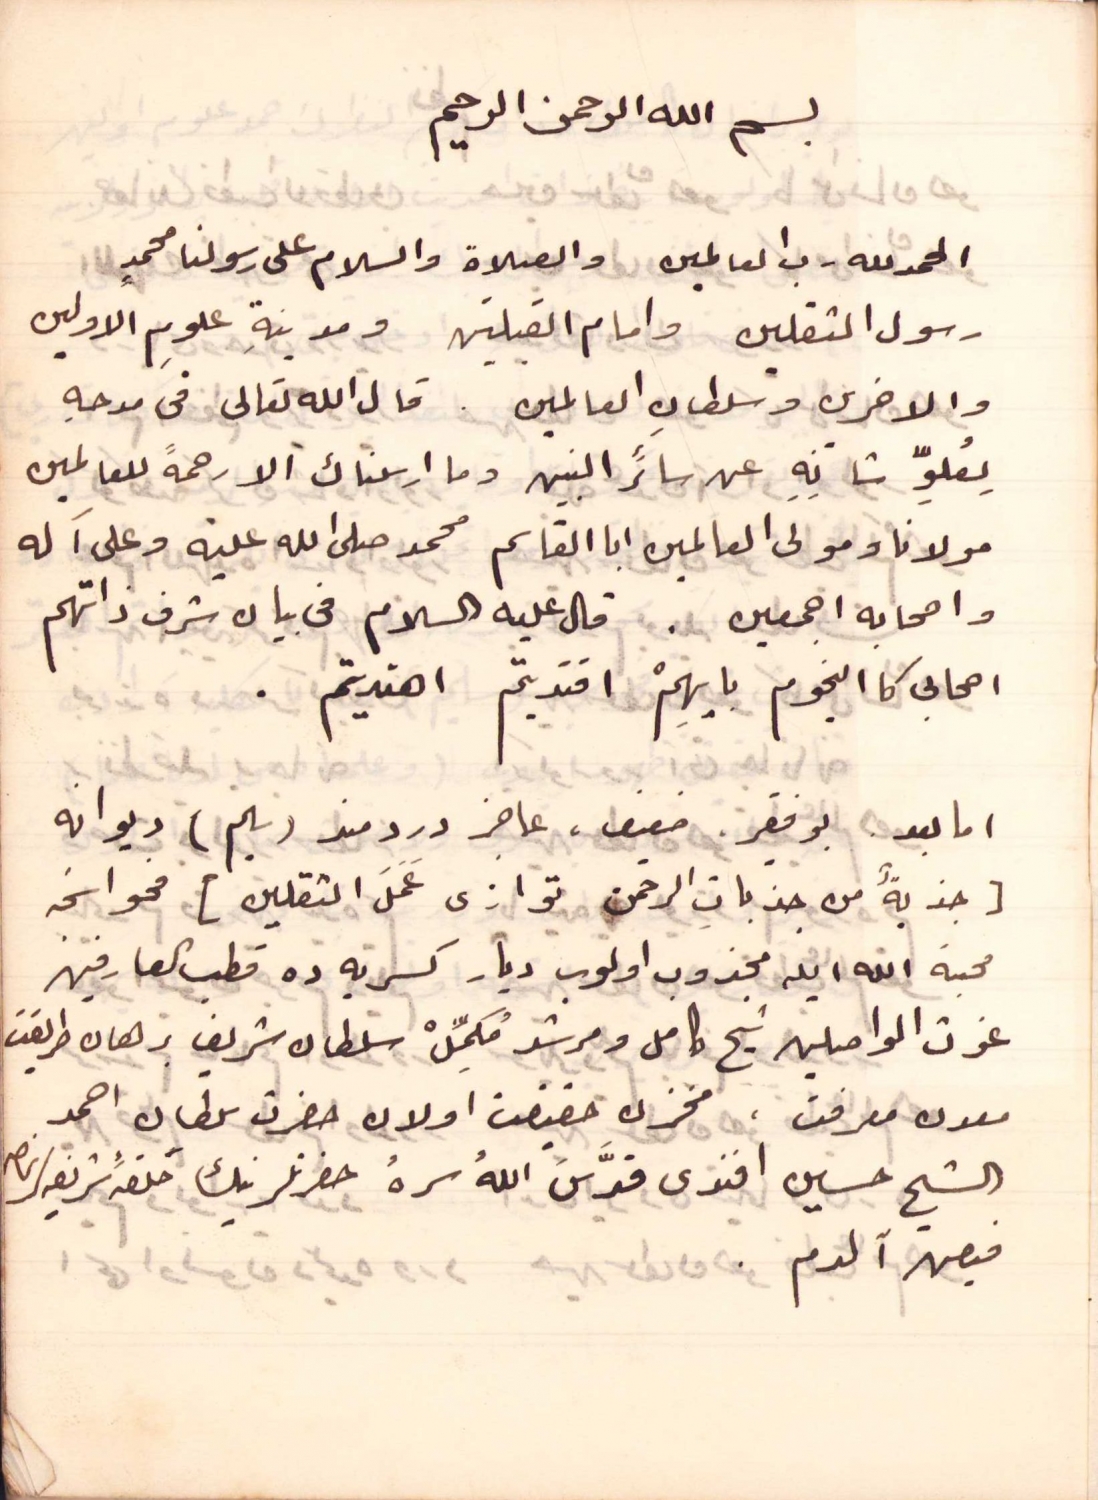 بسم الله الرحمن الرحيم
الحمد لله رب العالمين والصلاة والسلام على رسولنا محمدٍ
رسول الثقلين وامام القبلتين ومدينةِ علومِ الاولين
والاخرين وسلطانِ العالمين . قال الله تعالى فى مدحهِ
لِعُلوِّ شانِهِ عن سائرِ النبيين وما ارسلناك الا رحمةً للعالمين
مولانا ومولى العالمين ابا القاسم محمد صلى الله عليه وعلى آله
واصحابه اجمعين . قال عليه السلام فى بيان شرف ذاتهم
اصحابى كا النجوم بايهِمْ اقتديتم اهتديتم .
اما بعد . بو فقير . ضعيف ، عاجز دردمند (يم) ديوانه
[ جذبةٌ من جذباتِ الرحمن توازى عَمَلَ الثقلين ] فحواسنجه
محبة الله ايله مجذوب اولوب ديار كسريه ده قطب العارفين
غوث الواصلين شيخ كامل ومرشد مُكَمِّلْ سلطان شريف برهان طريقت
معدن معرفت ، مخزن حقيقت اولان حضرت سلطان احمد
الشيخ حسين افندى قدَّسَ اللهُ سرهُ حضرتلرينك خلفهٔ شريفه
فيض آلدم .